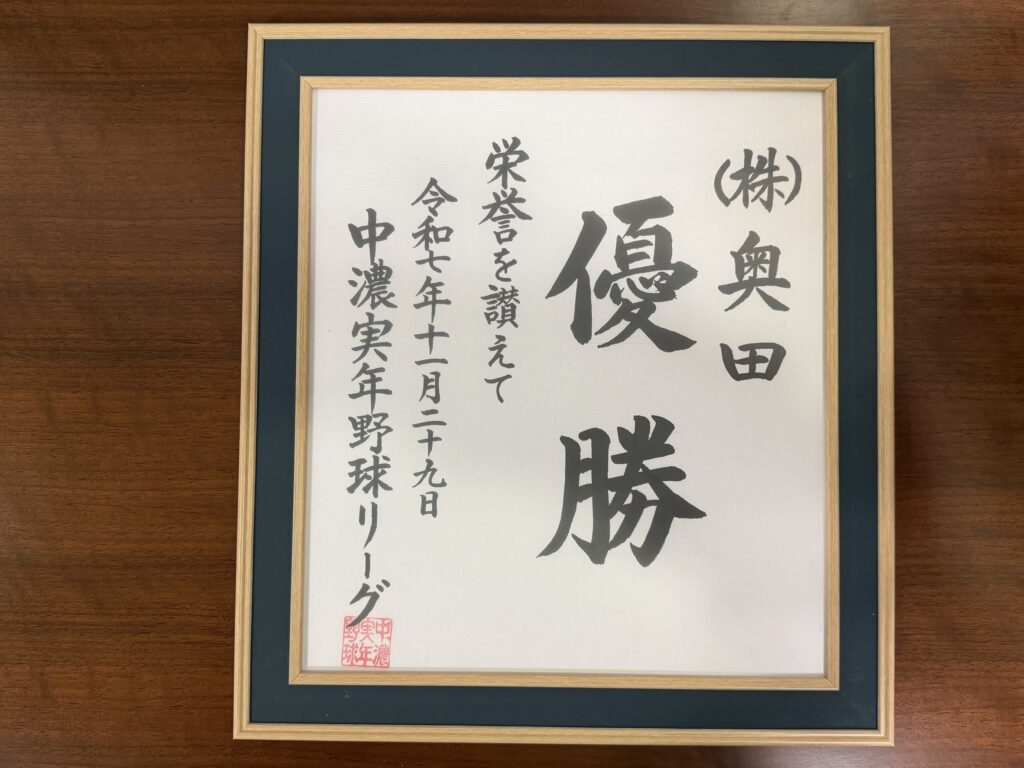 (株)奥田
優勝
栄誉を讃えて
令和七年十一月二十九日
中濃実年野球リーグ
中濃
実年
野球